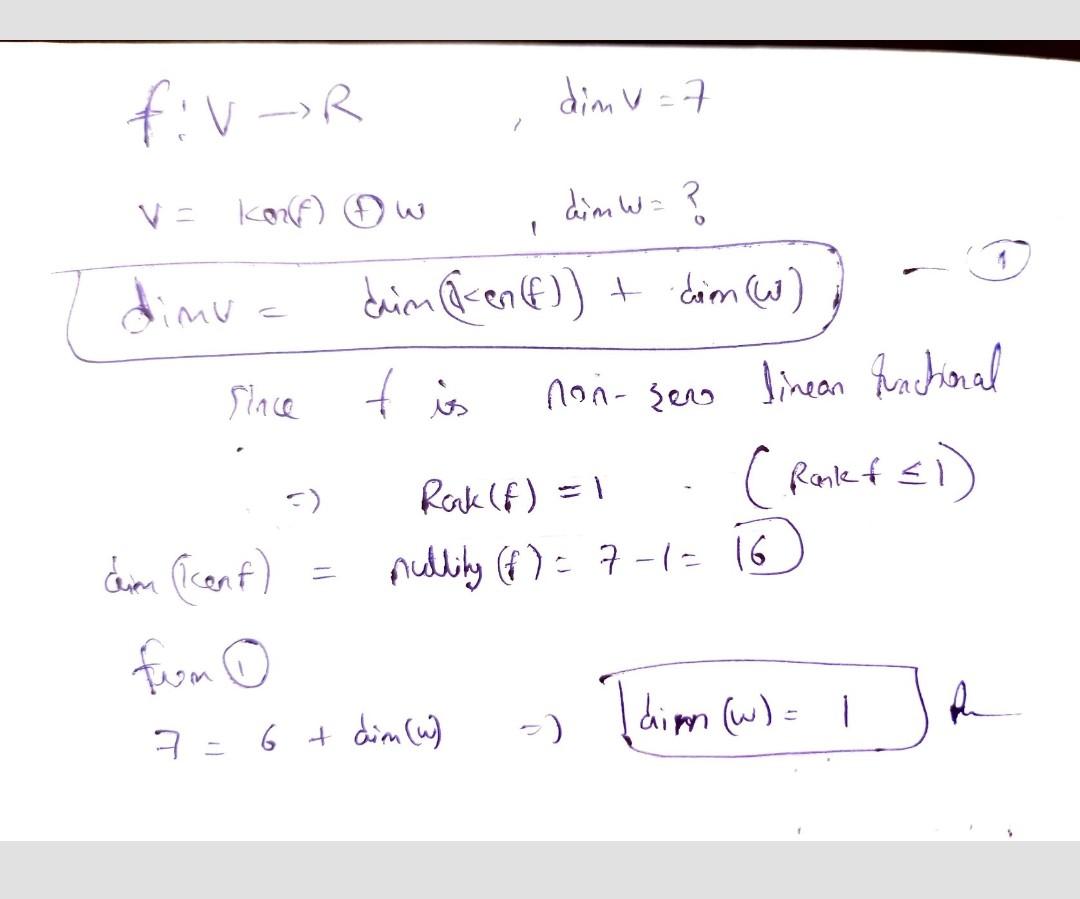 f: V → R , dim V = 7
V = Ker(f) ⊕ W , dim W = ?
dim V = dim(Ker(f)) + dim(W) — ①
Since f is non-zero linear functional
⇒ Rank(f) = 1 . (Rank f ≤ 1)
dim(Ker f) = nullity (f) = 7 - 1 = 6
from ①
7 = 6 + dim(W) ⇒ dim(W) = 1